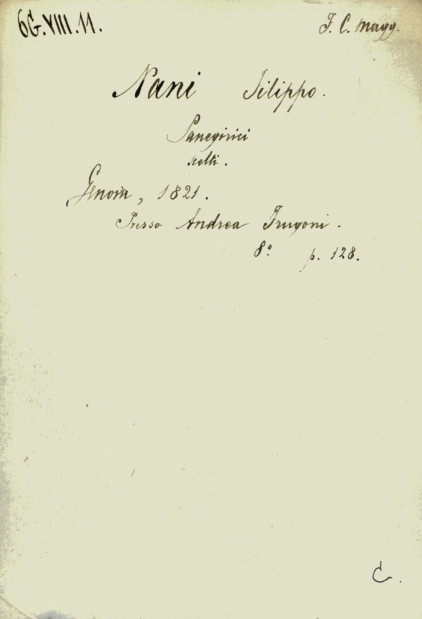 6G.VIII.11. F. C. Magg.
Nani Filippo.
Panegirici
scelti.
Genova, 1821.
Presso Andrea Frugoni.
8° p. 128.
C.